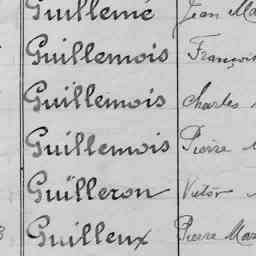 Guillemé Jean Ma
Guillemois François
Guillemois Charles
Guillemois Pierre
Guilleron Victor
Guilleux Pierre Mar